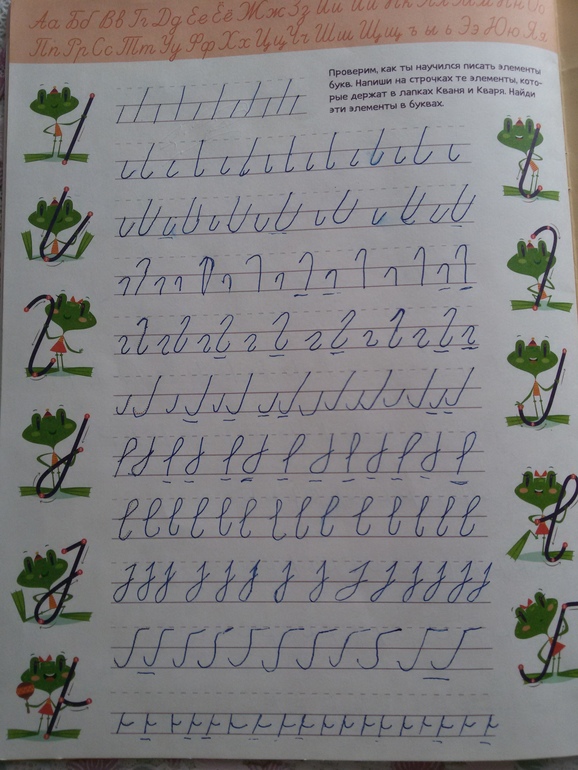 Аа Бб Вв Гг Дд Ее Ёё Жж Зз Ии Йй Кк Лл Мм Нн Оо
Пп Рр Сс Тт Уу Фф Хх Цц Чч Шш Щщ ъ ы ь Ээ Юю Яя
Проверим, как ты научился писать элементы
букв. Напиши на строчках те элементы, кото-
рые держат в лапках Кваня и Кваря. Найди
эти элементы в буквах.